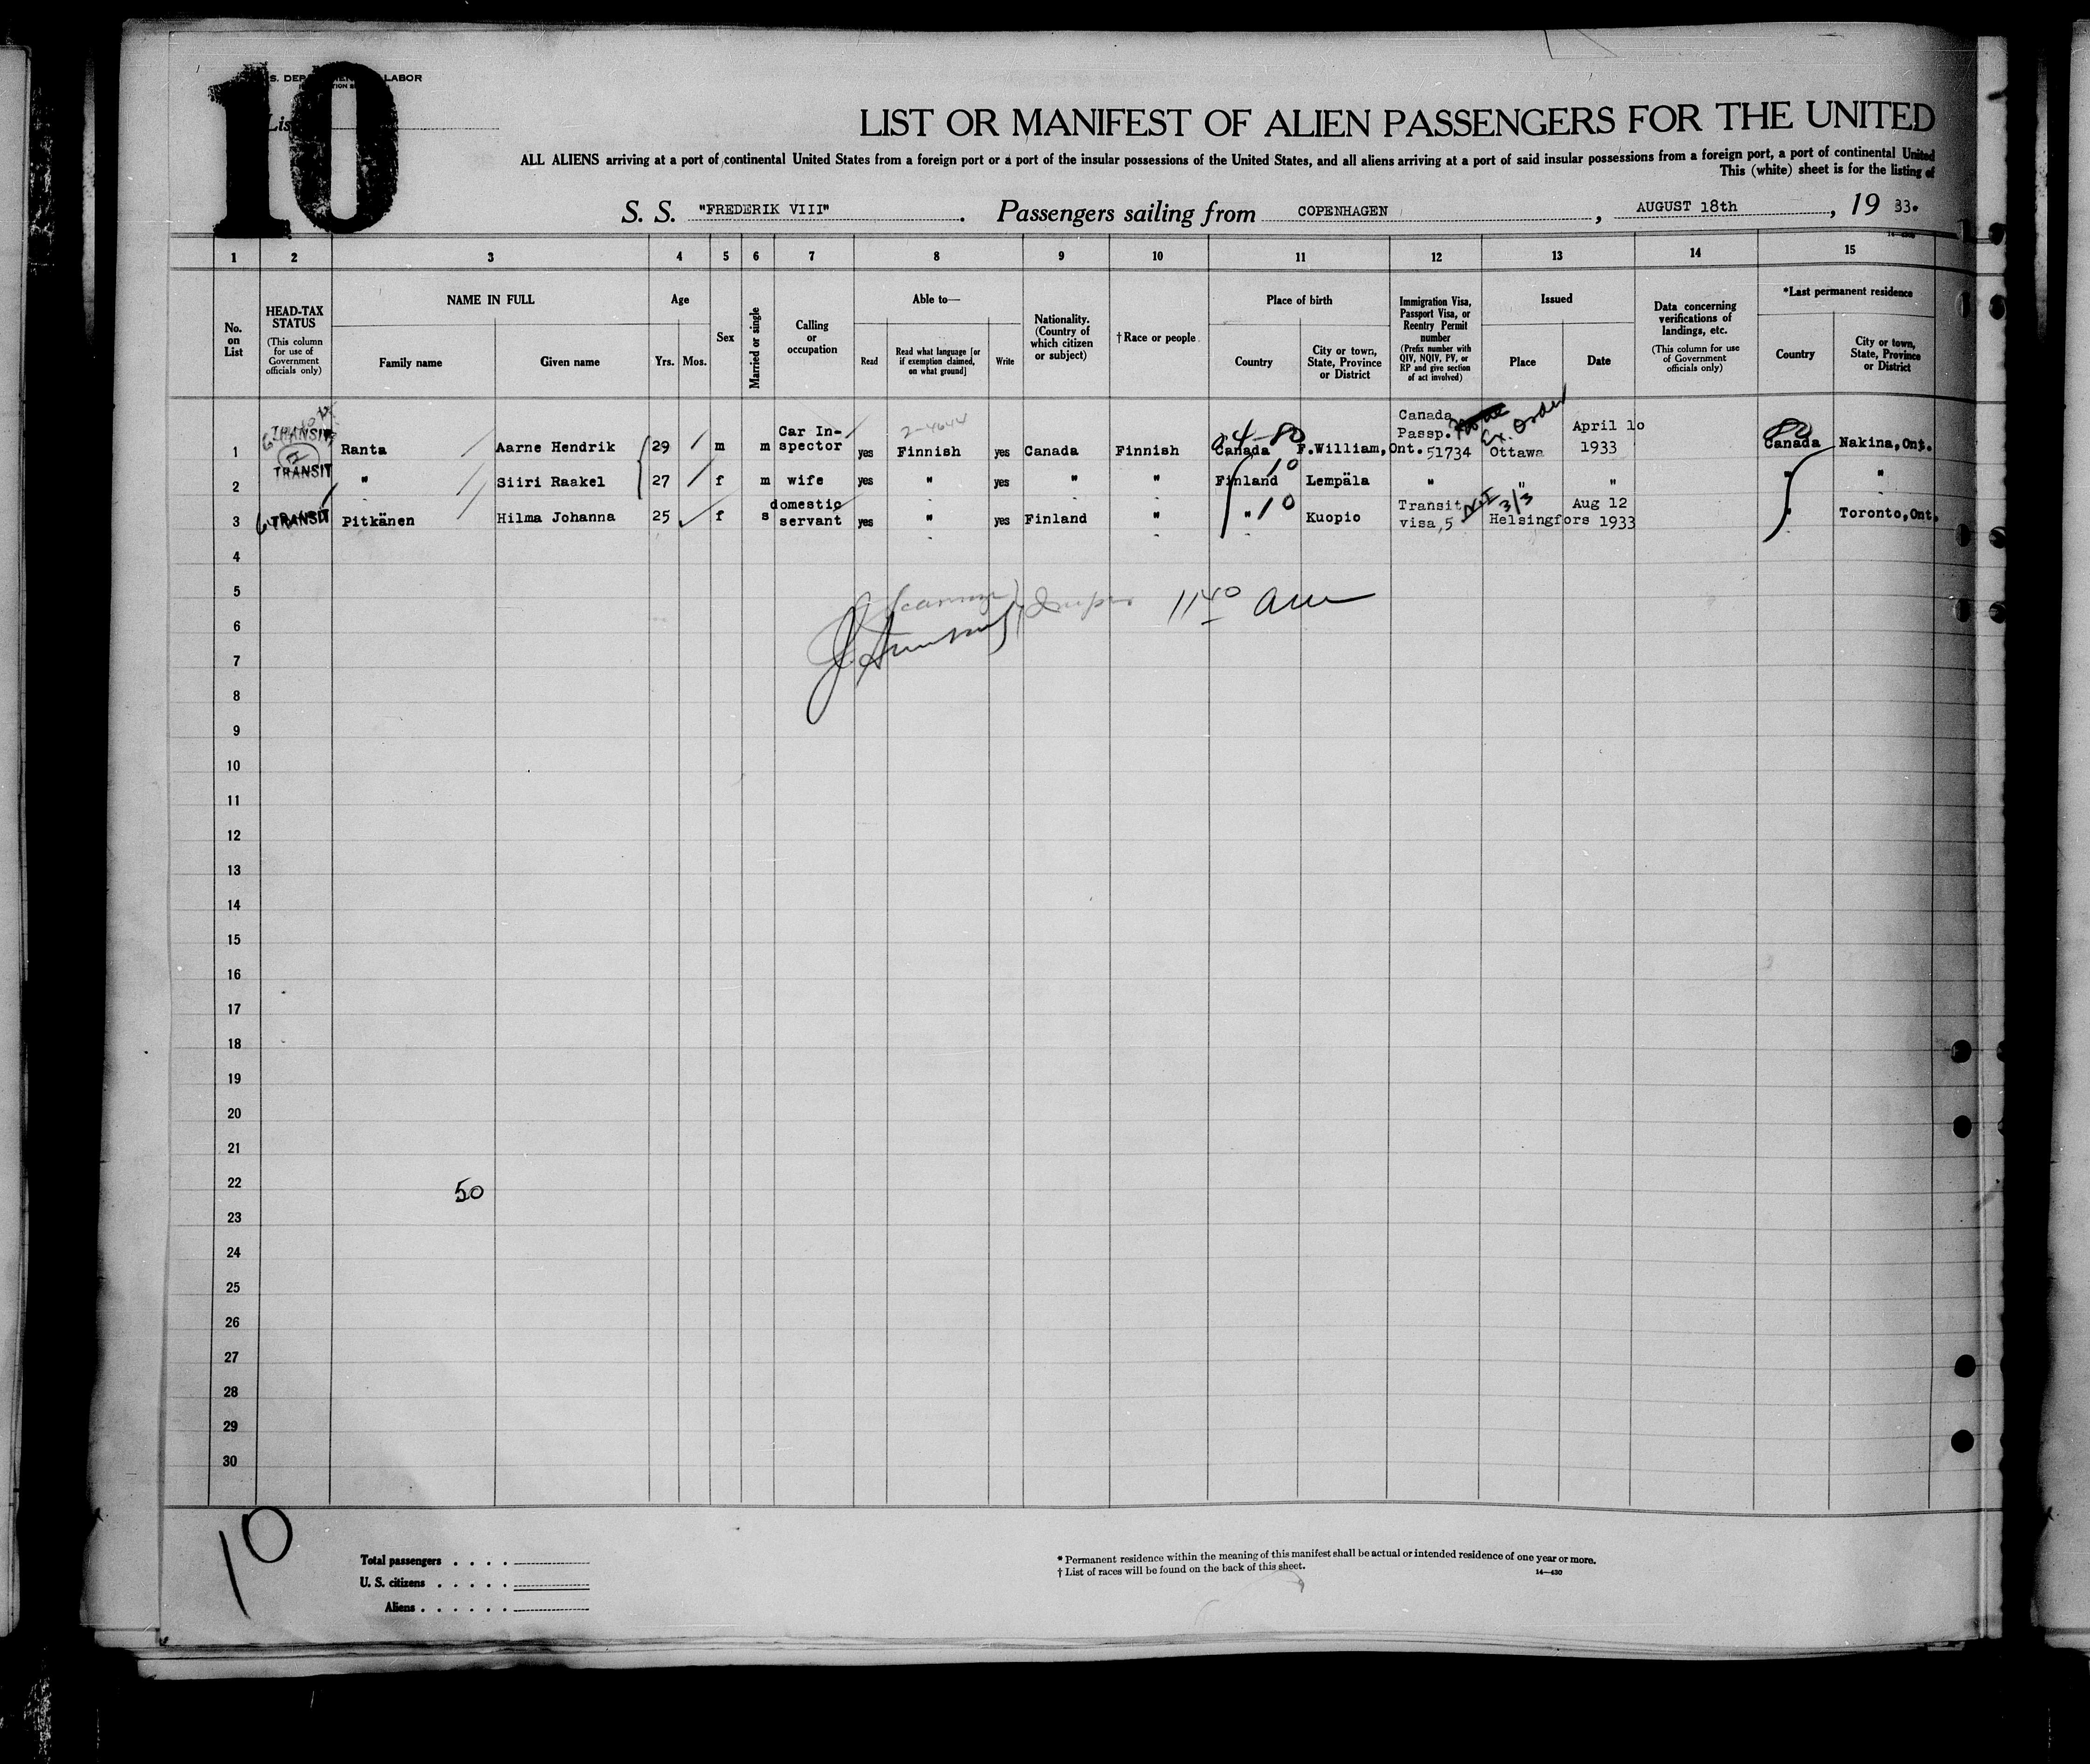 10
LABOR
LIST OR MANIFEST OF ALIEN PASSENGERS FOR THE UNITED
ALL ALIENS arriving at a port of continental United States from a foreign port or a port of the insular possessions of the United States, and all aliens arriving at a port of said insular possessions from a foreign port, a port of continental United
This (white) sheet is for the listing of
S. S. "FREDERIK VIII". Passengers sailing from COPENHAGEN, AUGUST 18th, 19 33.
1 2 3 4 5 6 7 8 9 10 11 12 13 14 15
No. on List
HEAD-TAX STATUS (This column for use of Government officials only)
NAME IN FULL
Family name
Given name
Age
Yrs.
Mos.
Sex
Married or single
Calling or occupation
Able to—
Read
Read what language [or if exemption claimed, on what ground]
Write
Nationality. (Country of which citizen or subject)
† Race or people
Place of birth
Country
City or town, State, Province or District
Immigration Visa, Passport Visa, or Reentry Permit number (Prefix number with QIV, NQIV, PV, or RP and give section of act involved)
Issued
Place
Date
Data concerning verifications of landings, etc. (This column for use of Government officials only)
*Last permanent residence
Country
City or town, State, Province or District
1 TRANSIT Ranta Aarne Hendrik 29 m m Car Inspector yes 2-4644 Finnish yes Canada Finnish Canada F.William, Ont. Canada Passp. 51734 Ex. Order Ottawa April 10 1933 Canada Nakina, Ont.
2 TRANSIT " Siiri Raakel 27 f m wife yes " yes " " Finland 10 Lempäla " " " " "
3 TRANSIT Pitkänen Hilma Johanna 25 f s domestic servant yes " yes Finland " " 10 Kuopio Transit visa, 5 3/3 Helsingfors Aug 12 1933 " Toronto, Ont.
4
5
11 40 am
6
7
8
9
10
11
12
13
14
15
16
17
18
19
20
21
22 50
23
24
25
26
27
28
29
30
10
Total passengers . . . .
U. S. citizens . . . . .
Aliens . . . . . .
* Permanent residence within the meaning of this manifest shall be actual or intended residence of one year or more.
† List of races will be found on the back of this sheet.
14—430